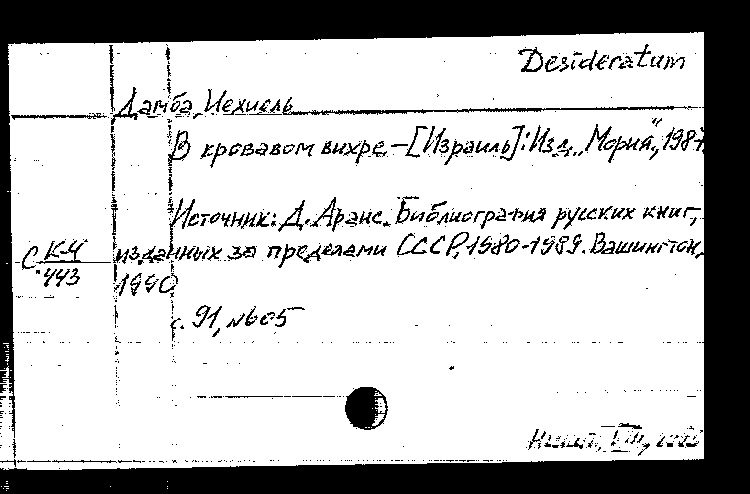 Desideratum
Дамба, Иехиель
В кровавом вихре.—[Израиль]: Изд. „Мория“, 1987.
Источник: Д. Аранс. Библиография русских книг,
изданных за пределами СССР, 1980-1989. Вашингтон,
1990
с. К-4
443
с. 91, №605